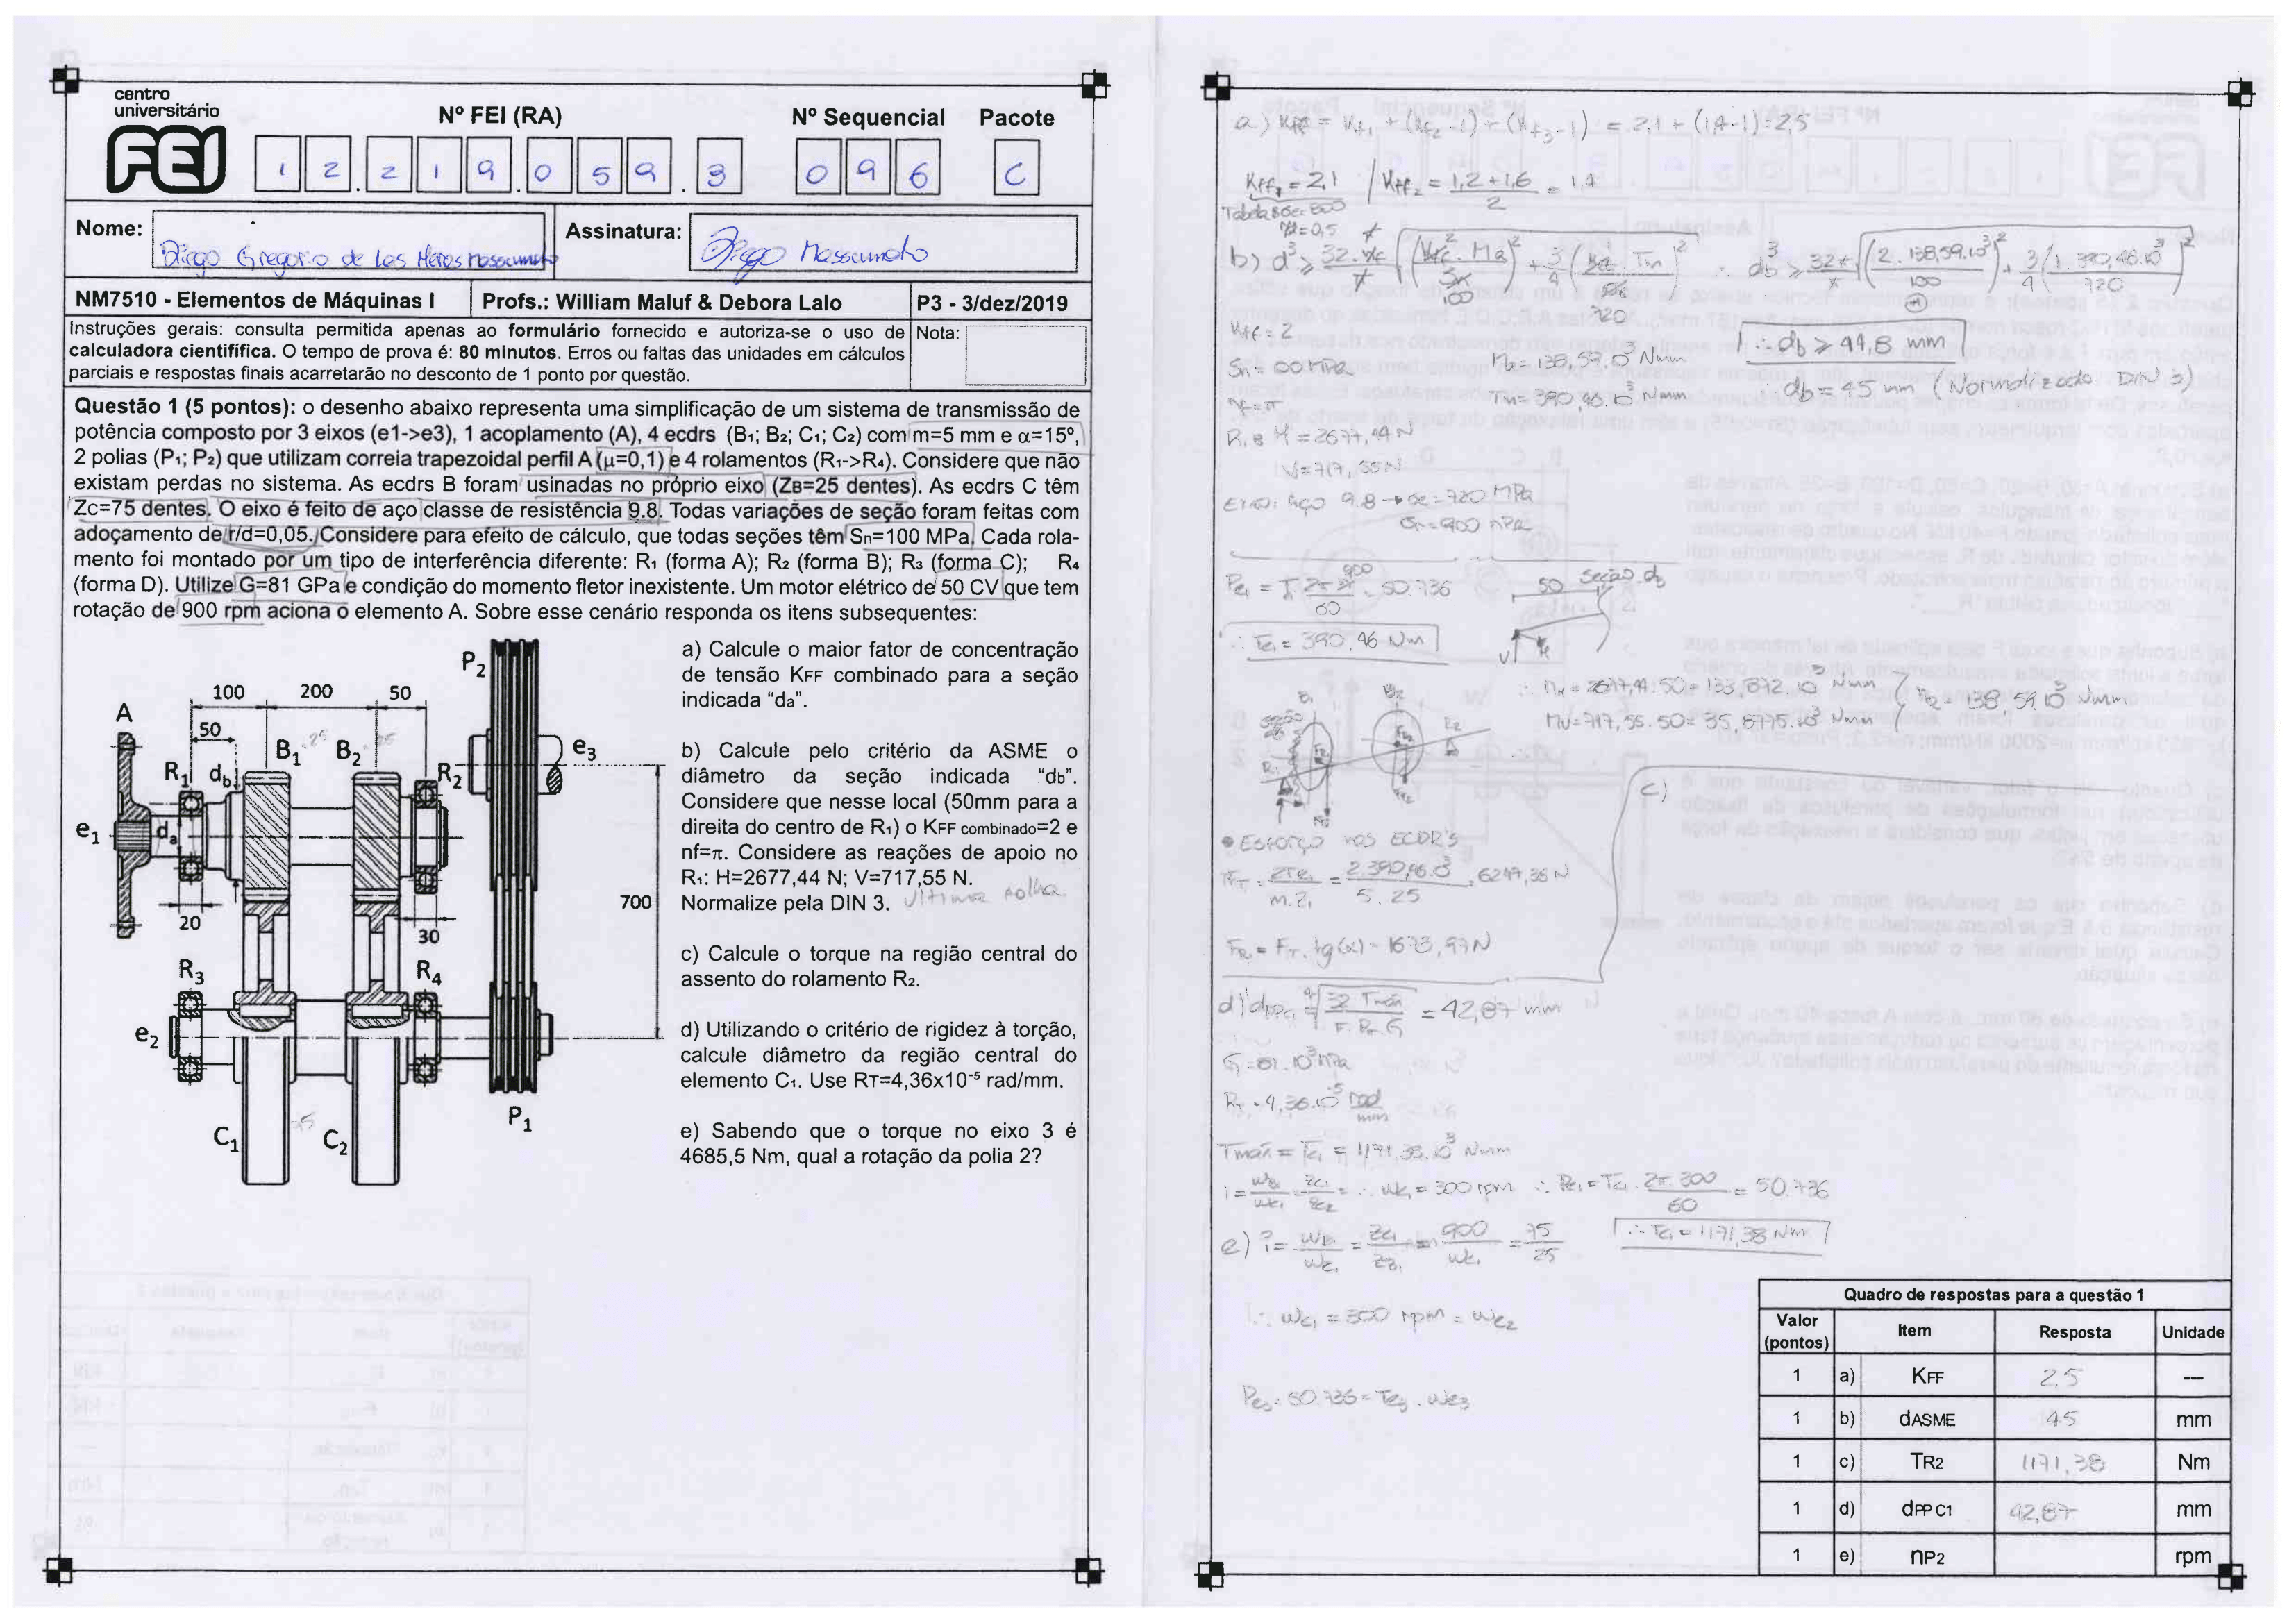 centro
universitário
FEI
Nº FEI (RA)
Nº Sequencial
Pacote
1 2 . 2 1 9 . 0 5 9 . 3
0 9 6
C
Nome:
Diego Gregorio de Las
Assinatura:
Diego
NM7510 - Elementos de Máquinas I
Profs.: William Maluf & Debora Lalo
P3 - 3/dez/2019
Instruções gerais: consulta permitida apenas ao formulário fornecido e autoriza-se o uso de
calculadora cientifífica. O tempo de prova é: 80 minutos. Erros ou faltas das unidades em cálculos
parciais e respostas finais acarretarão no desconto de 1 ponto por questão.
Nota:
Questão 1 (5 pontos): o desenho abaixo representa uma simplificação de um sistema de transmissão de
potência composto por 3 eixos (e1->e3), 1 acoplamento (A), 4 ecdrs (B1; B2; C1; C2) com m=5 mm e α=15º,
2 polias (P1; P2) que utilizam correia trapezoidal perfil A (μ=0,1) e 4 rolamentos (R1->R4). Considere que não
existam perdas no sistema. As ecdrs B foram usinadas no próprio eixo (ZB=25 dentes). As ecdrs C têm
Zc=75 dentes. O eixo é feito de aço classe de resistência 9.8. Todas variações de seção foram feitas com
adoçamento de r/d=0,05. Considere para efeito de cálculo, que todas seções têm Sn=100 MPa. Cada rola-
mento foi montado por um tipo de interferência diferente: R1 (forma A); R2 (forma B); R3 (forma C); R4
(forma D). Utilize G=81 GPa e condição do momento fletor inexistente. Um motor elétrico de 50 CV que tem
rotação de 900 rpm aciona o elemento A. Sobre esse cenário responda os itens subsequentes:
P2
100
200
50
A
50
B1
25
B2
25
e3
R1
db
R2
e1
da
20
30
700
R3
R4
e2
C1
C2
P1
a) Calcule o maior fator de concentração
de tensão KFF combinado para a seção
indicada “da”.
b) Calcule pelo critério da ASME o
diâmetro da seção indicada “db”.
Considere que nesse local (50mm para a
direita do centro de R1) o KFF combinado=2 e
nf=π. Considere as reações de apoio no
R1: H=2677,44 N; V=717,55 N.
Normalize pela DIN 3. Ultima folha
c) Calcule o torque na região central do
assento do rolamento R2.
d) Utilizando o critério de rigidez à torção,
calcule diâmetro da região central do
elemento C1. Use RT=4,36x10⁻⁵ rad/mm.
e) Sabendo que o torque no eixo 3 é
4685,5 Nm, qual a rotação da polia 2?
a) Kff = Kf1 + (Kf2 -1) + (Kf3 -1) = 2,1 + (1,4-1) = 2,5
Kff1 = 2,1 / Kff2 = 1,2+1,6 / 2 = 1,4
∴ db ≥ 44,8 mm
∴ db = 45 mm (Normalizado DIN 3)
Kff = 2
nf = π
M2 = 138,59.10³ Nmm
Tm = 390,46.10³ Nmm
R1B H = 2677,44 N
V = 717,55 N
Eixo: Aço 9.8 → σe = 720 MPa
σr = 900 MPa
Pe1 = T. 2π 900 / 60 = 50.736
∴ Te1 = 390,46 Nm
50
seção db
∴ MH = 2677,44.50 = 133,872.10³ Nmm
MV = 717,55.50 = 35,8775.10³ Nmm
MR = 138,59.10³ Nmm
• Esforço nos ECDR's
FT = 2Te1 / m.Z1 = 2.390,46.10³ / 5.25 = 6247,36 N
FR = FT . tg(α) = 1673,97 N
c)
d) dPPC1 = ⁴√ 32 Tmáx / π. RT. G = 42,87 mm
G = 81.10³ MPa
RT = 4,36.10⁻⁵ rad/mm
Tmáx = Tc1 = 1171,38.10³ Nmm
∴ wc1 = 300 rpm ∴ Pc1 = Tc1 . 2π.300 / 60 = 50.736
∴ Tc1 = 1171,38 Nm
e) i = wB1 / wc1 = Zc1 / ZB1 = 900 / wc1 = 75 / 25
∴ wc1 = 300 rpm = wc2
Pe3 = 50.736 = Te3 . we3
Quadro de respostas para a questão 1
Valor (pontos) Item Resposta Unidade
1 a) KFF 2,5 ---
1 b) dASME 45 mm
1 c) TR2 1171,38 Nm
1 d) dPP C1 42,87 mm
1 e) nP2 rpm